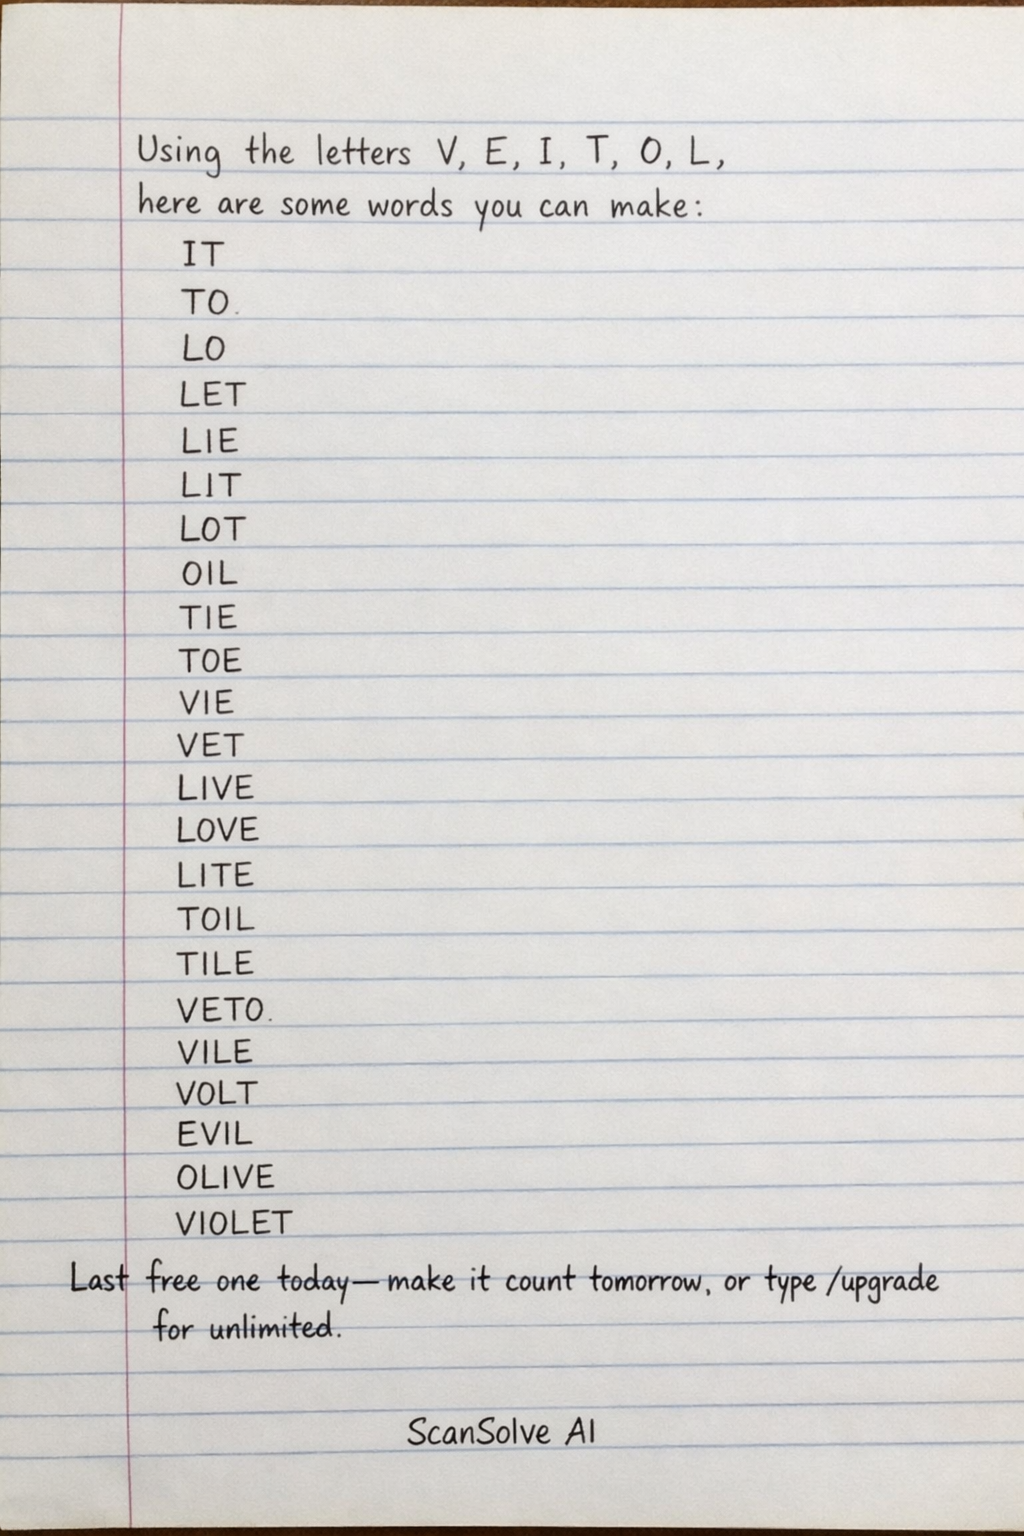 Using the letters V, E, I, T, O, L,
here are some words you can make:
IT
TO.
LO
LET
LIE
LIT
LOT
OIL
TIE
TOE
VIE
VET
LIVE
LOVE
LITE
TOIL
TILE
VETO.
VILE
VOLT
EVIL
OLIVE
VIOLET
Last free one today—make it count tomorrow, or type /upgrade
for unlimited.
ScanSolve AI